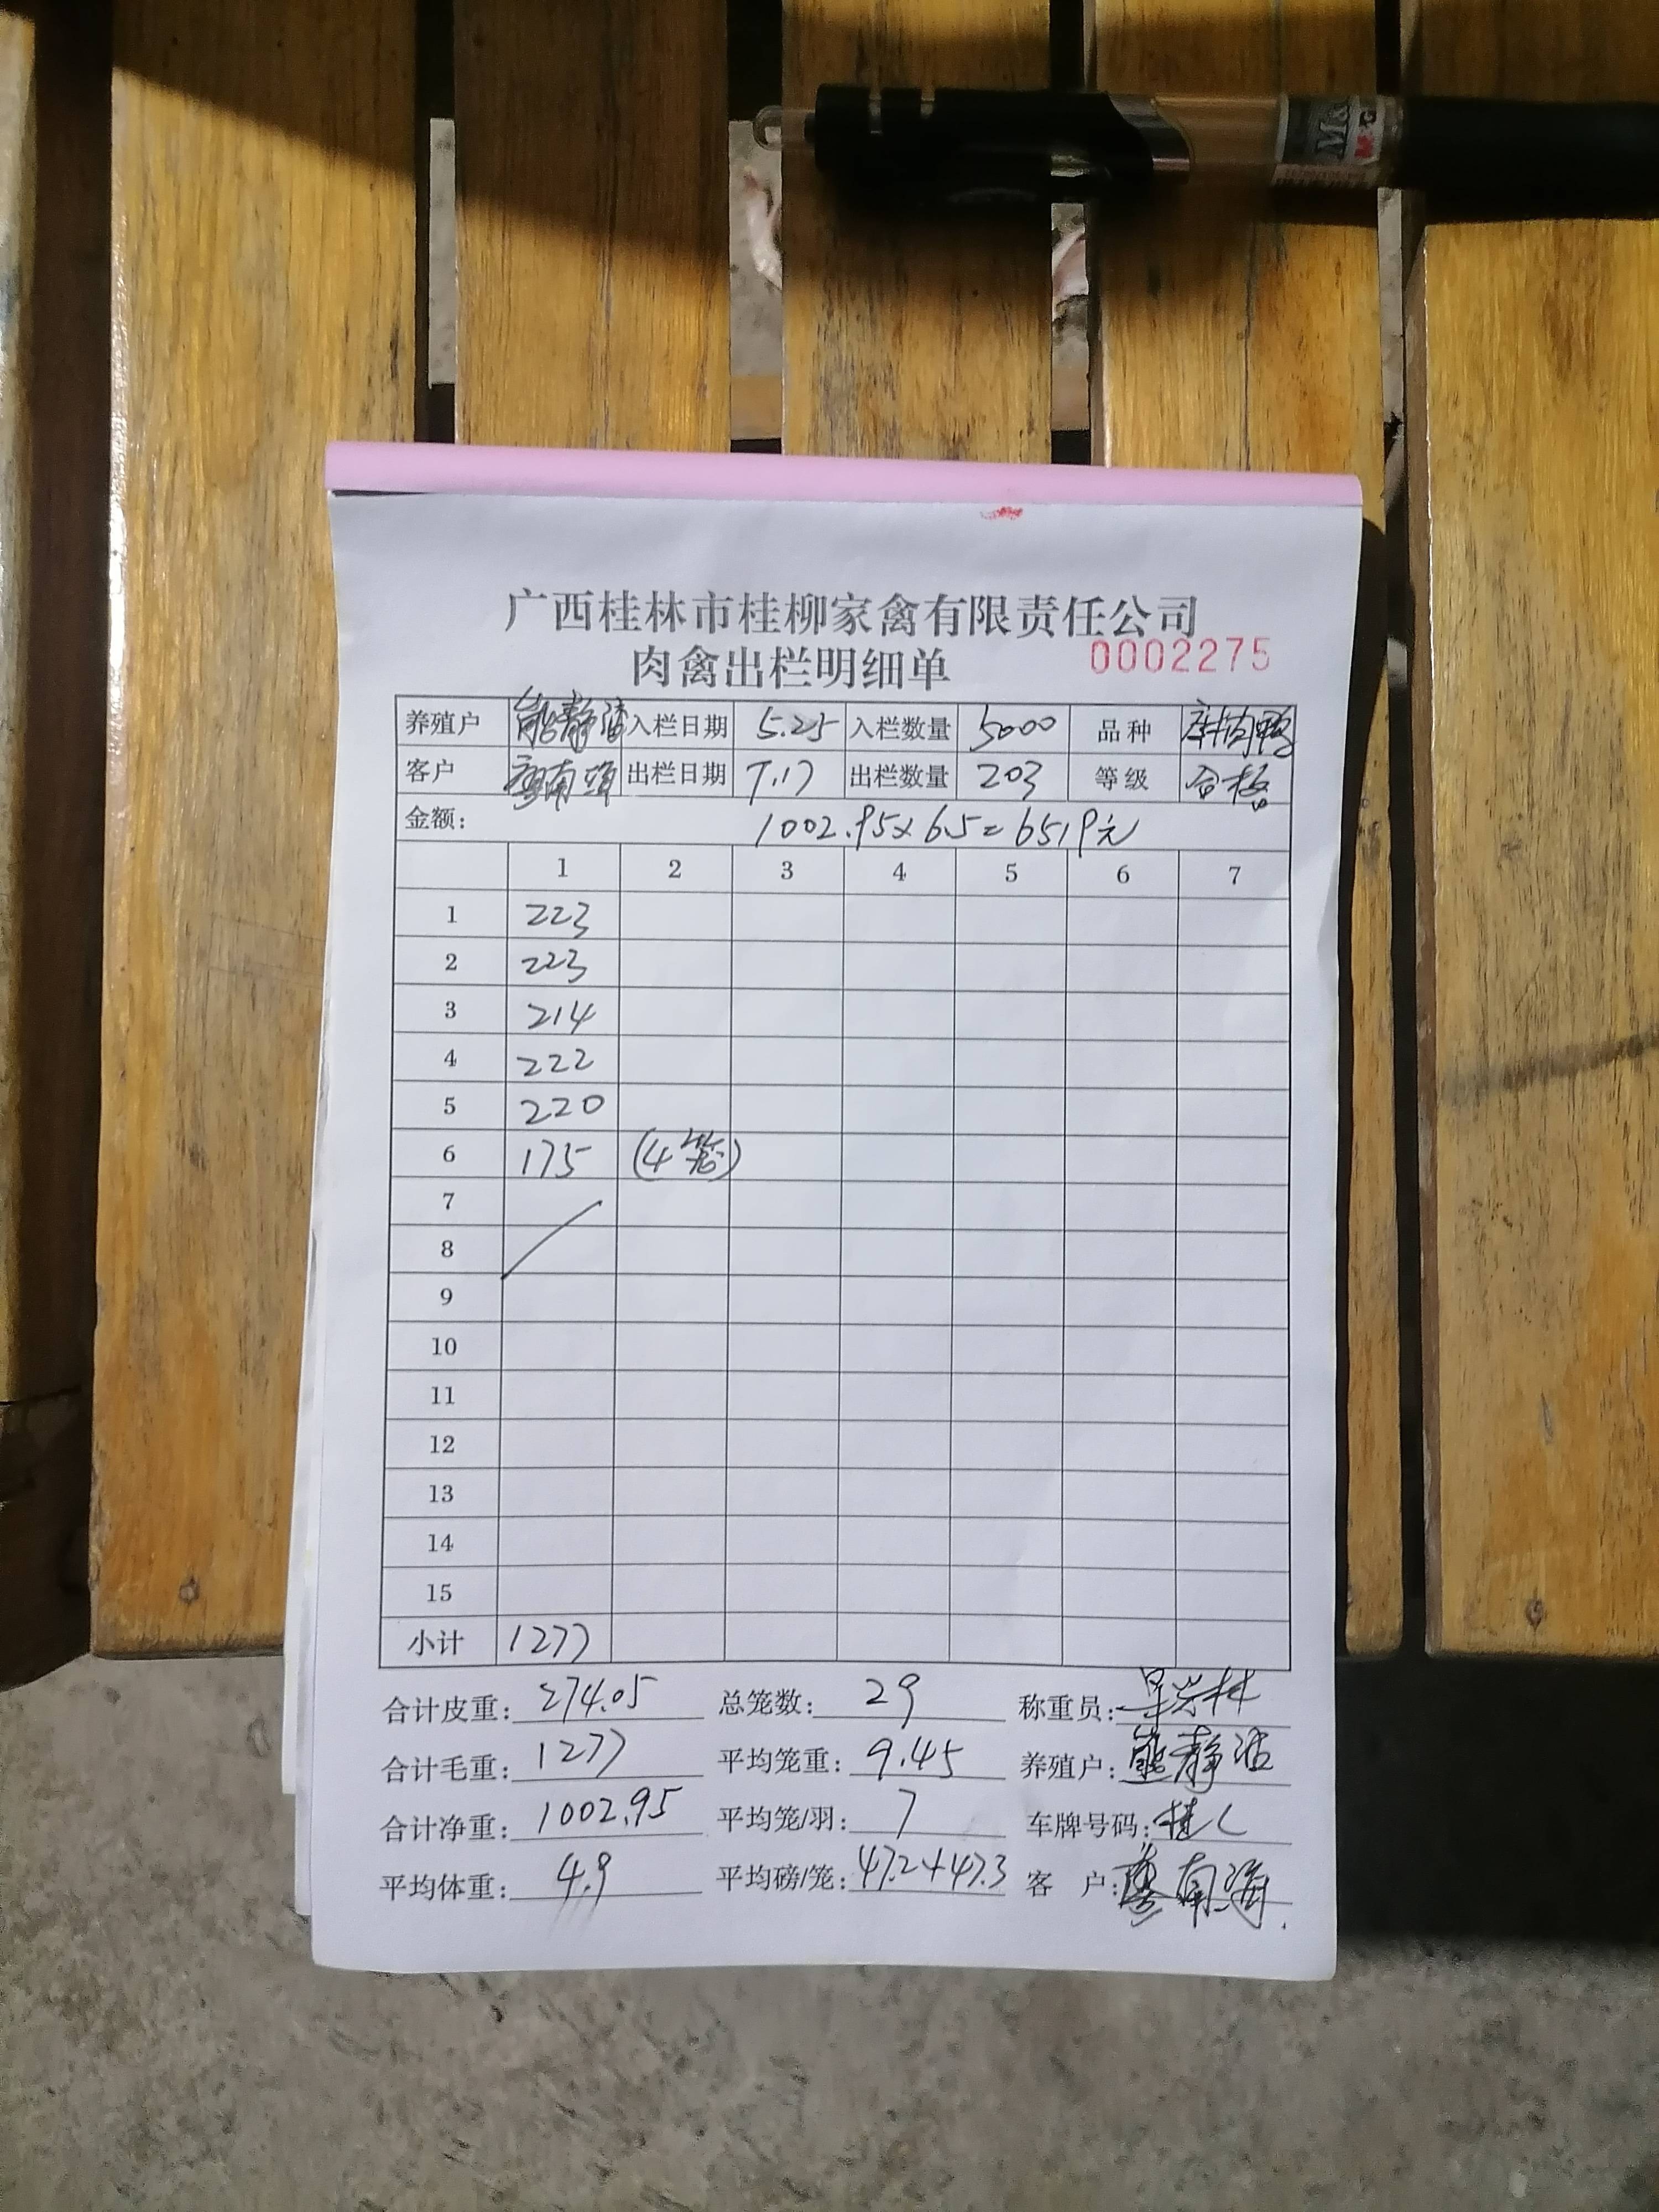 M&G
广西桂林市桂柳家禽有限责任公司
肉禽出栏明细单
0002275
养殖户 熊静 入栏日期 5.25 入栏数量 5000 品种 肉鸭
客户 廖南海 出栏日期 7.17 出栏数量 203 等级 合格
金额: 1002.95×6.5=6519元
1 2 3 4 5 6 7
1 223
2 223
3 214
4 222
5 220
6 175 (4笼)
7
8
9
10
11
12
13
14
15
小计 1277
合计皮重: 274.05 总笼数: 29 称重员: 林
合计毛重: 1277 平均笼重: 9.45 养殖户: 熊静
合计净重: 1002.95 平均笼/羽: 7 车牌号码: 桂C
平均体重: 4.9 平均磅/笼: 47.2+47.3 客 户: 廖南海